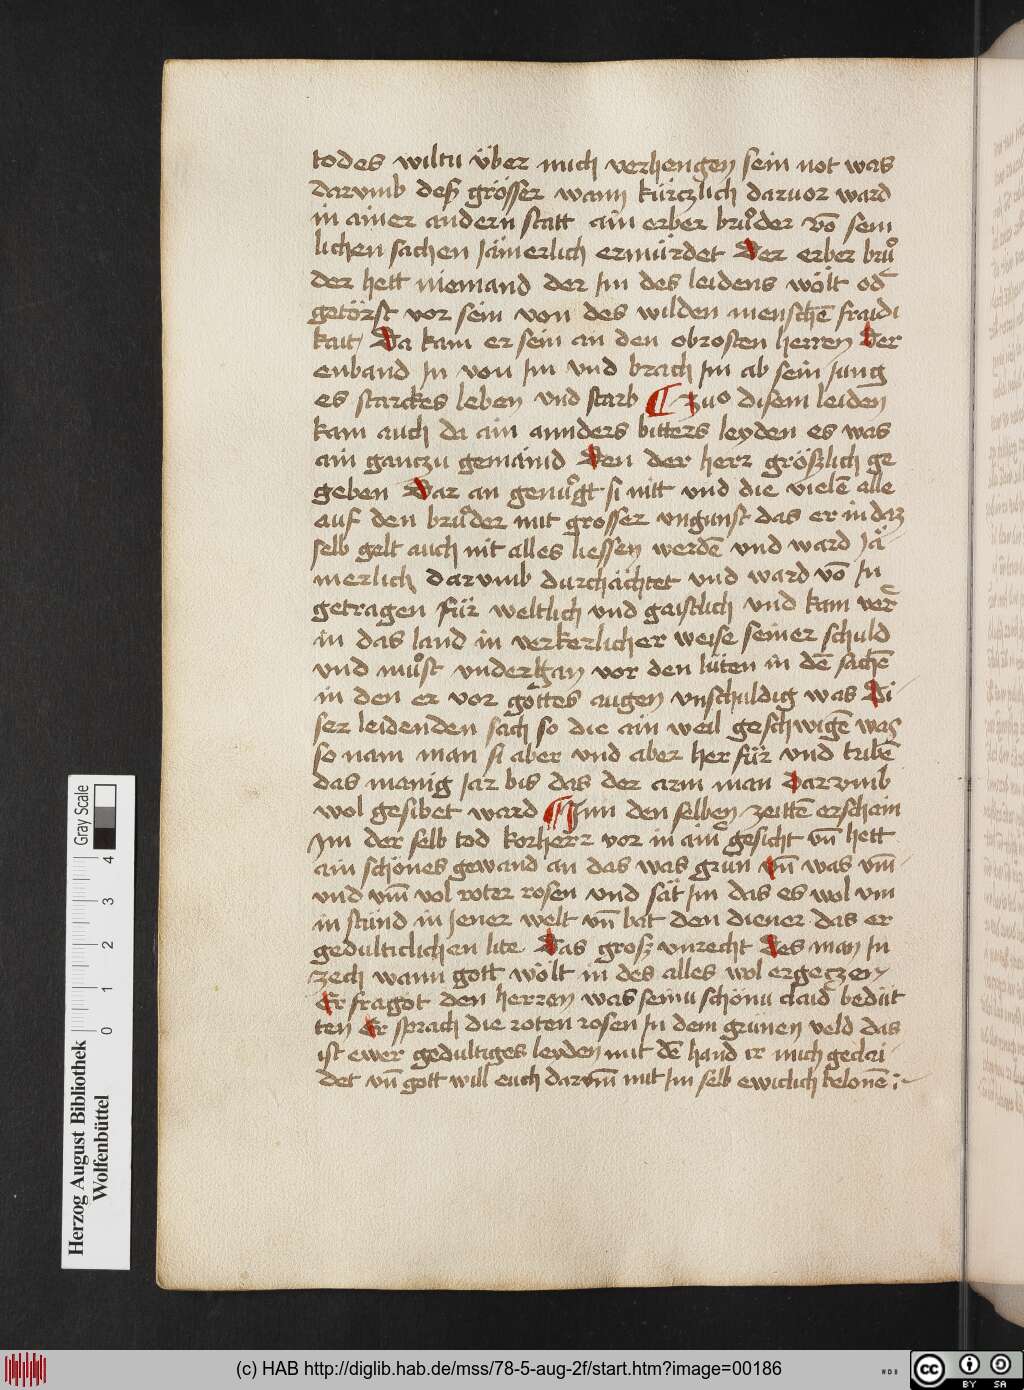 todes wiltu über mich verhengen sein not was
darvmb deß grösser wann kürczlich daruor ward
in ainer andern statt ain erber brůder vō sem
lichen sachen Jämerlich ermürdet Der erber brů
der hett niemand der Im des leidens wölt od
getörst vor sein von des wilden menschē fraidi
kait Da kam er sein an den obrosten herren Der
enband In von Im vnd brach Im ab sein Jung
es starckes leben vnd starb Zuo disem leiden
kam auch da ain annders bitters leyden es was
ain gantzu gemainid Den der herr größlich ge
geben Dar an genůgt si nitt vnd die vielē alle
auf den brůder mit grosser vngunst das er in daz
selb gelt auch nit alles liessen werdē vnd ward Jä
merlich darvmb durchächtet vnd ward vō In
getragen für weltlich vnd gaistlich vnd kam ver
in das land in verkerlicher weise seiner schuld
vnd můst vndergan vor den lüten in dē sachē
in den er vor gottes augen vnschuldig was Di
ser leidenden sach so die ain weil geschwigē was
so nam man si aber vnd aber her für vnd tribē
das manig Jar bis das der arm man darvmb
wol gesibet ward Inn den selben zeittē erschein
Im der selb tod korherr vor in aim gesicht vn̄ hett
ain schönes gewand an das was grün vn̄ was vm̄
vnd vm̄ vol roter rosen vnd sät Im das es wol vm
in stünd in Jener welt vn̄ bat den diener das er
gedulticlichen lite Das groß vnrecht Des man In
zech wann gott wölt in des alles wol ergeczen
Er fragot den herren was seinu schönu claid bedüt
ten Er sprach die roten rosen In dem grünen veld das
ist ewer gedultiges leyden mit dē hand ir mich geclai
det vn̄ gott will euch darvm̄ mit Im selb ewiclich belonē :
Gray Scale
4
3
2
1
0
Herzog August Bibliothek
Wolfenbüttel
(c) HAB http://diglib.hab.de/mss/78-5-aug-2f/start.htm?image=00186
WDB
cc BY SA